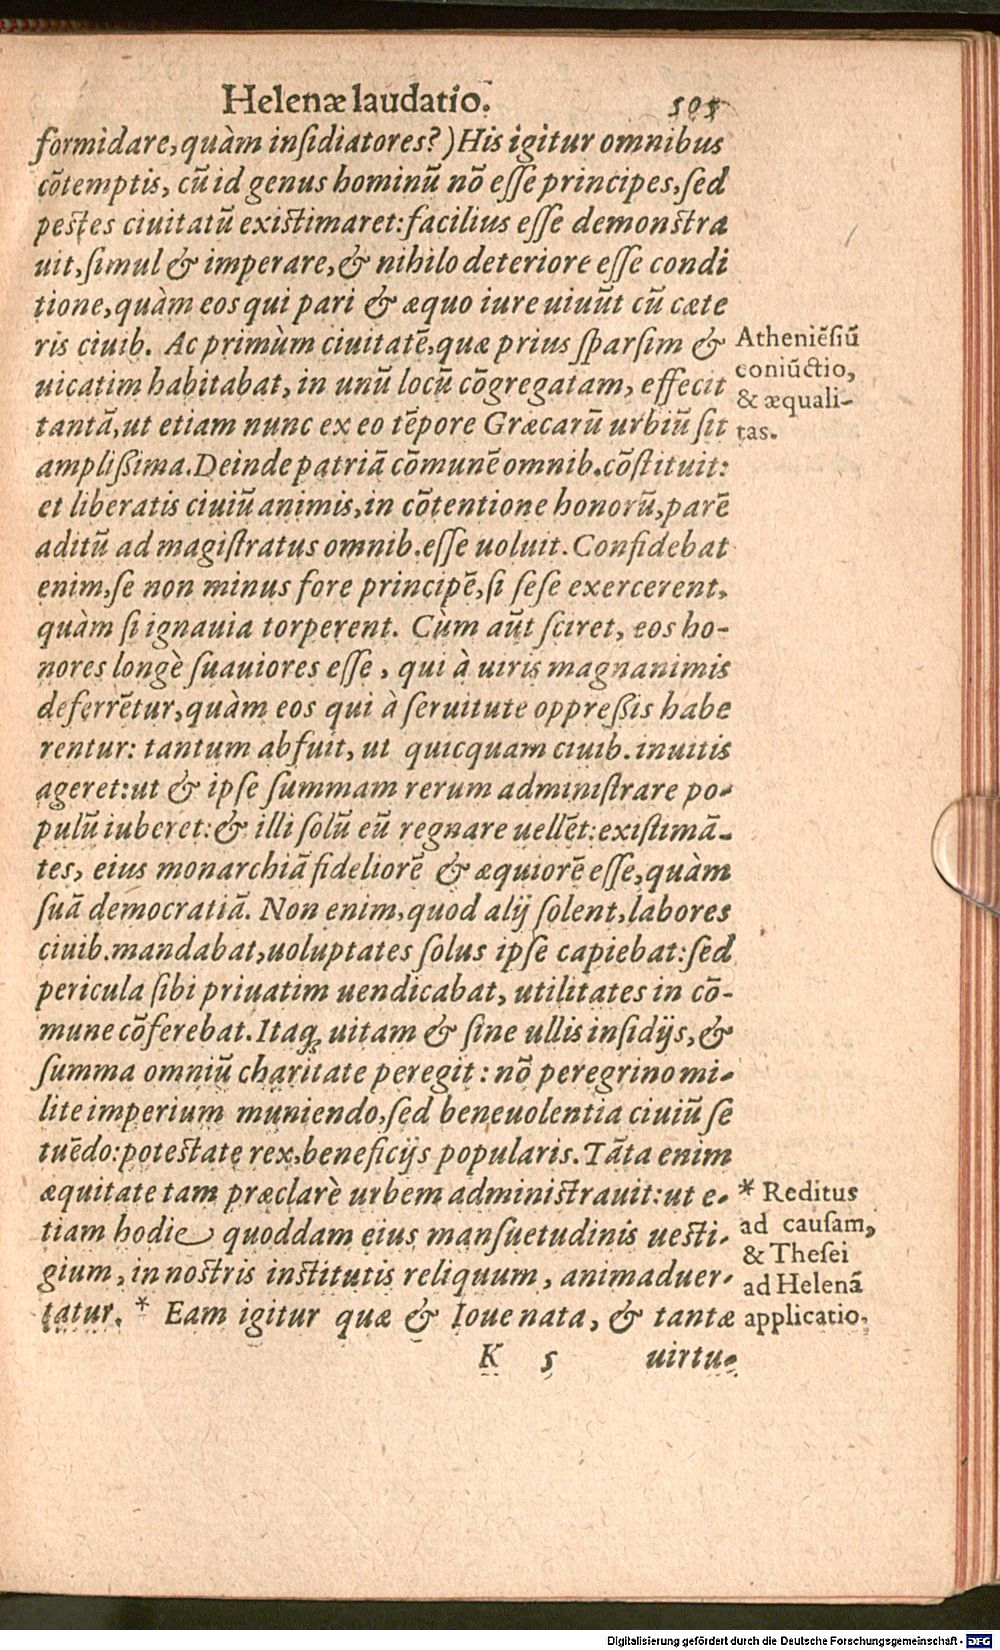 Helenæ laudatio. 505
formidare, quàm insidiatores?) His igitur omnibus
cōtemptis, cū id genus hominū nō esse principes, sed
pestes ciuitatū existimaret: facilius esse demonstra
uit, simul & imperare, & nihilo deteriore esse condi
tione, quàm eos qui pari & æquo iure uiuūt cū cæte
ris ciuib. Ac primùm ciuitatē, quæ prius sparsim &
uicatim habitabat, in unū locū cōgregatam, effecit
tantā, ut etiam nunc ex eo tēpore Græcarū urbiū sit
amplissima. Deinde patriā cōmunē omnib. cōstituit:
et liberatis ciuiū animis, in cōtentione honorū, parē
aditū ad magistratus omnib. esse uoluit. Confidebat
enim, se non minus fore principē, si sese exercerent,
quàm si ignauia torperent. Cùm aūt sciret, eos ho-
nores longè suauiores esse, qui à uiris magnanimis
deferrētur, quàm eos qui à seruitute oppressis habe
rentur: tantum abfuit, ut quicquam ciuib. inuitis
ageret: ut & ipse summam rerum administrare po-
pulū iuberet: & illi solū eū regnare uellēt: existimā-
tes, eius monarchiā fideliorē & æquiorē esse, quàm
suā democratiā. Non enim, quod alij solent, labores
ciuib. mandabat, uoluptates solus ipse capiebat: sed
pericula sibi priuatim uendicabat, utilitates in cō-
mune cōferebat. Itaq; uitam & sine ullis insidijs, &
summa omniū charitate peregit: nō peregrino mi-
lite imperium muniendo, sed beneuolentia ciuiū se
tuēdo: potestate rex, beneficijs popularis. Tāta enim
æquitate tam præclarè urbem administrauit: ut e-
tiam hodie quoddam eius mansuetudinis uesti-
gium, in nostris institutis reliquum, animaduer-
tatur. * Eam igitur quæ & Ioue nata, & tantæ
K 5 uirtu-
Atheniēsiū
coniūctio,
& æquali-
tas.
* Reditus
ad causam,
& Thesei
ad Helenā
applicatio.
Digitalisierung gefördert durch die Deutsche Forschungsgemeinschaft - DFG